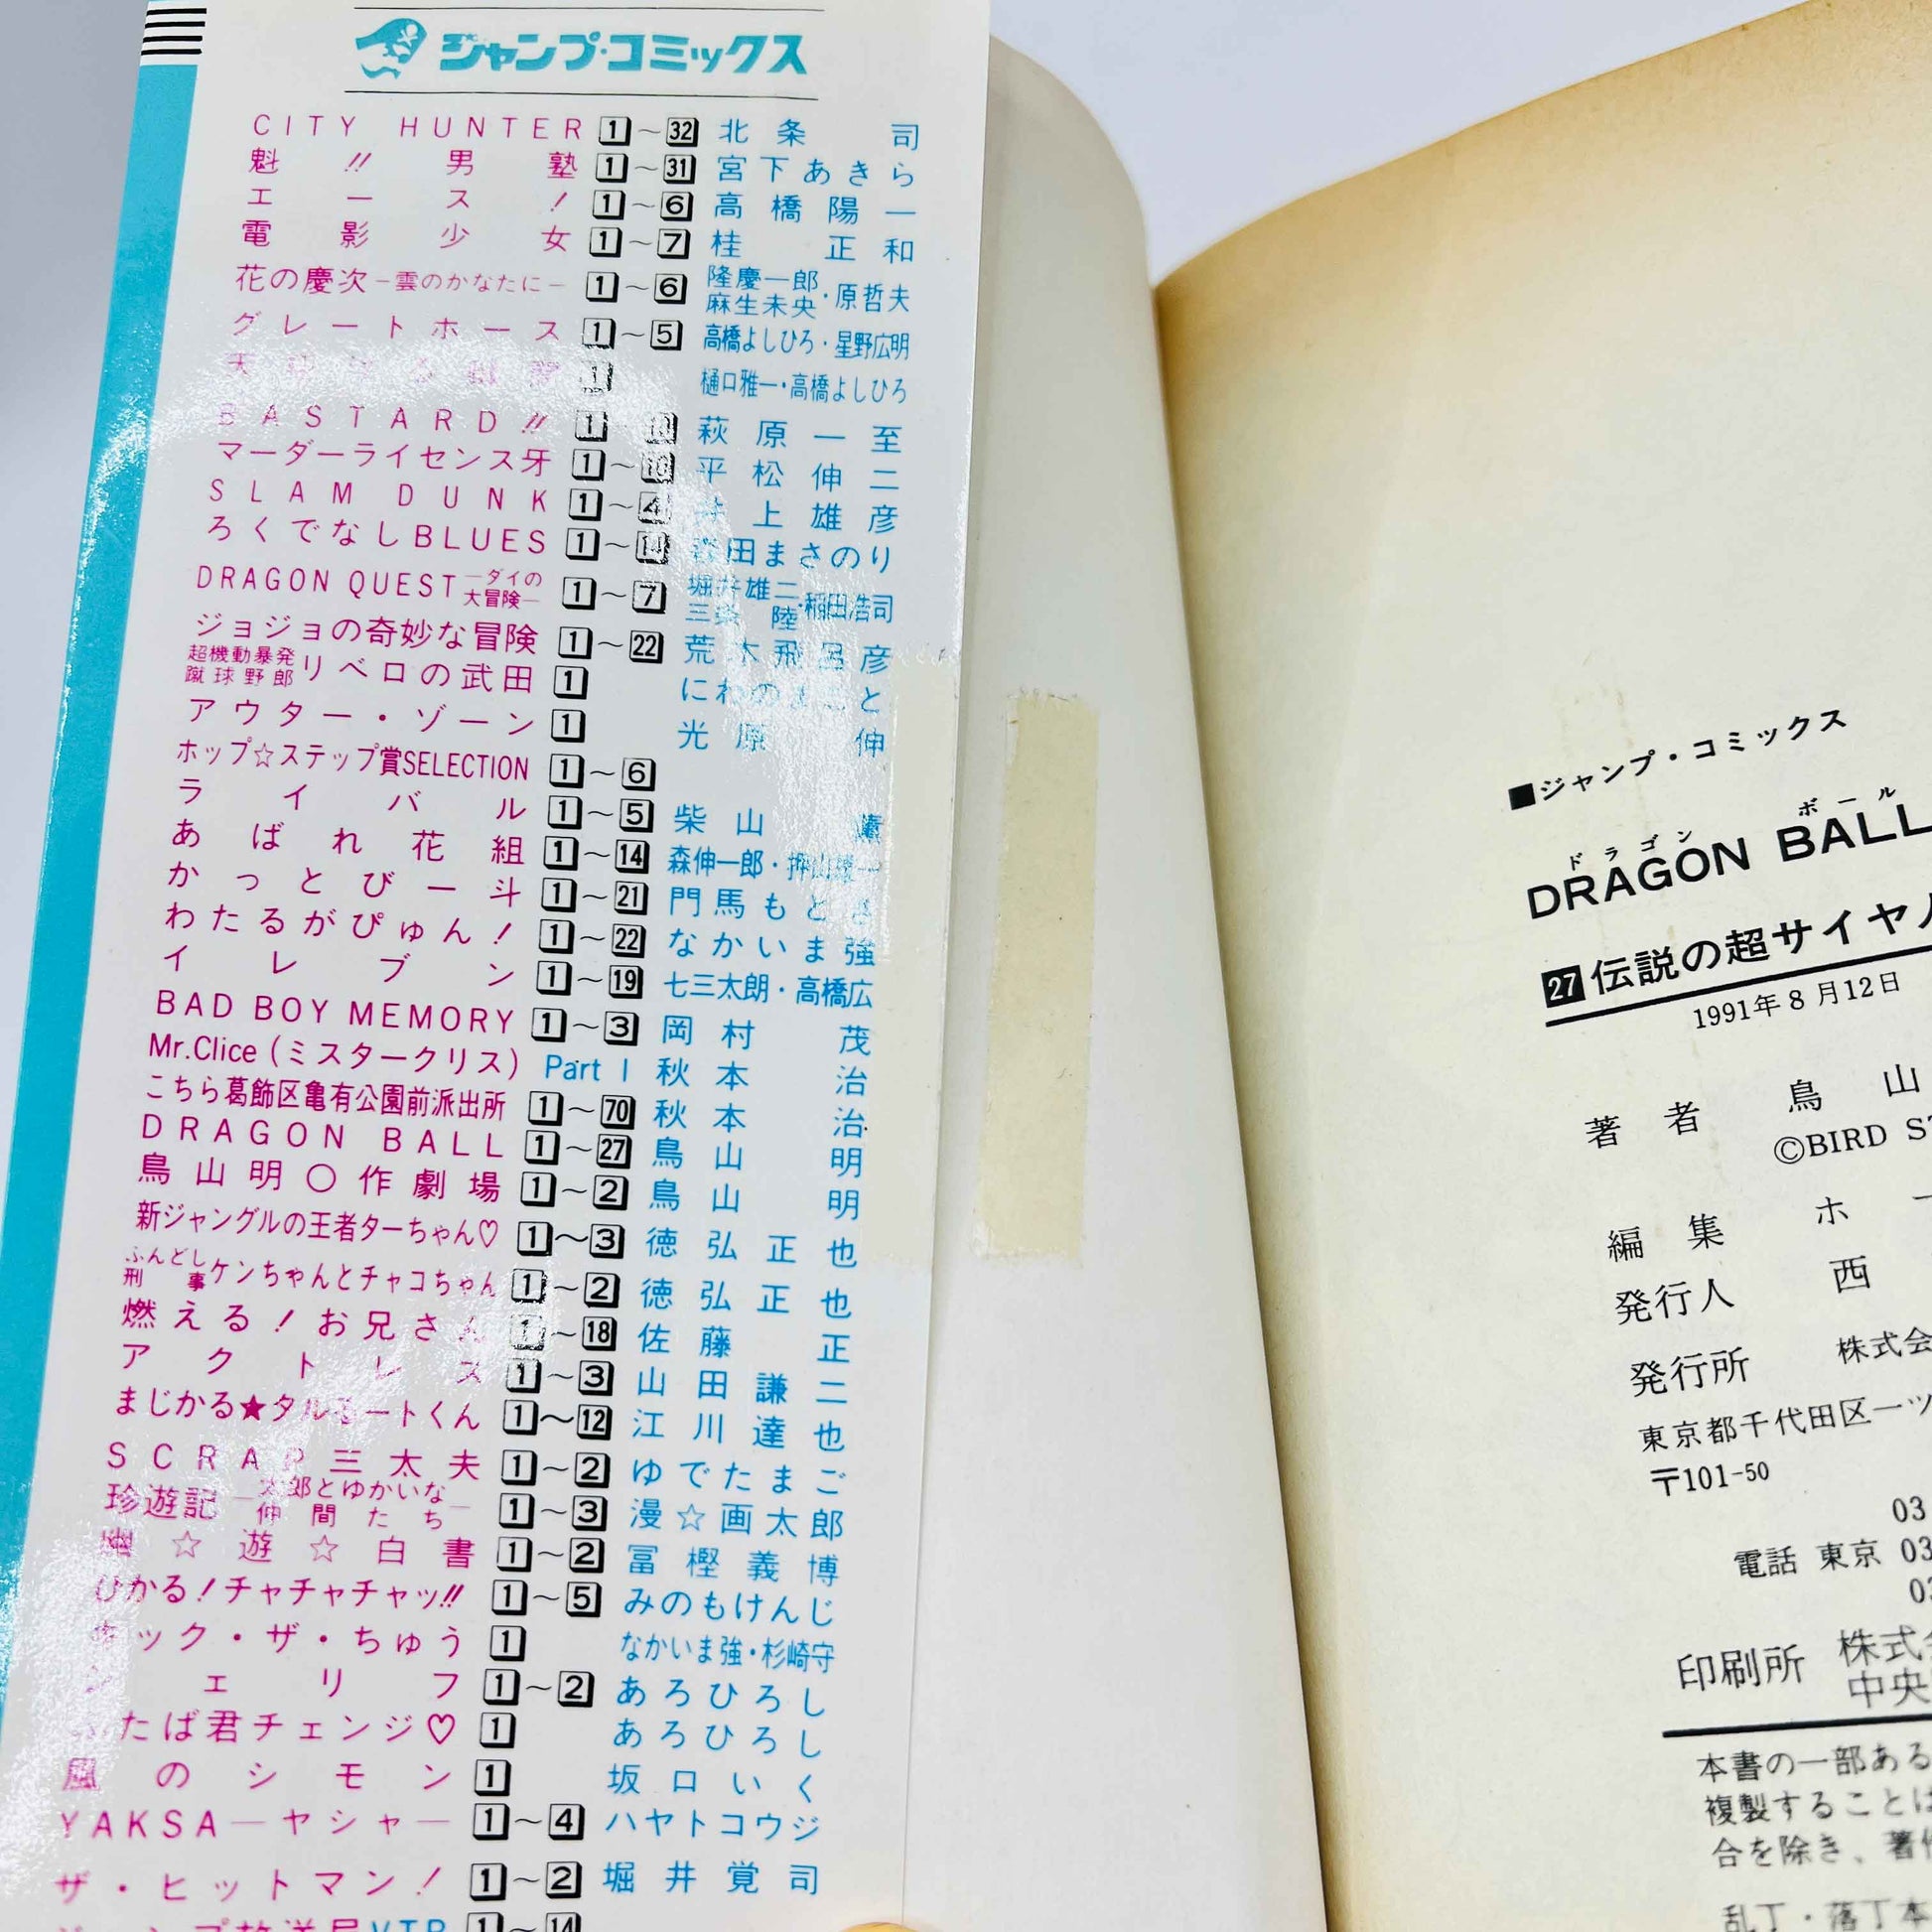 ジャンプ・コミックス
CITY HUNTER 1～32 北条司
魁!!男塾 1～31 宮下あきら
エース! 1～6 高橋陽一
電影少女 1～7 桂正和
花の慶次－雲のかなたに－ 1～6 隆慶一郎 麻生未央・原哲夫
グレートホース 1～5 高橋よしひろ・星野広明
1 樋口雅一・高橋よしひろ
BASTARD!! 1 萩原一至
マーダーライセンス牙 1～10 平松伸二
SLAM DUNK 1～4 井上雄彦
ろくでなしBLUES 1～14 森田まさのり
DRAGON QUEST－ダイの大冒険－ 1～7 堀井雄二 三条陸・稲田浩司
ジョジョの奇妙な冒険 1～22 荒木飛呂彦
超機動暴発蹴球野郎リベロの武田 1 にわのまこと
アウター・ゾーン 1 光原伸
ホップ☆ステップ賞SELECTION 1～6
ライバル 1～5 柴山薫
あばれ花組 1～14 森伸一郎・押山雄一
かっとび一斗 1～21 門馬もとき
わたるがぴゅん! 1～22 なかいま強
イレブン 1～19 七三太朗・高橋広
BAD BOY MEMORY 1～3 岡村茂
Mr.Clice(ミスタークリス) Part I 秋本治
こちら葛飾区亀有公園前派出所 1～70 秋本治
DRAGON BALL 1～27 鳥山明
鳥山明〇作劇場 1～2 鳥山明
新ジャングルの王者ターちゃん♡ 1～3 徳弘正也
ふんどし刑事ケンちゃんとチャコちゃん 1～2 徳弘正也
燃える!お兄さん 1～18 佐藤正
アクトレス 1～3 山田謙二
まじかる★タルるートくん 1～12 江川達也
SCRAP三太夫 1～2 ゆでたまご
珍遊記－太郎とゆかいな仲間たち－ 1～3 漫☆画太郎
幽☆遊☆白書 1～2 冨樫義博
ひかる!チャチャチャッ!! 1～5 みのもけんじ
キック・ザ・ちゅう 1 なかいま強・杉崎守
シェリフ 1～2 あろひろし
ふたば君チェンジ♡ 1 あろひろし
風のシモン 1 坂口いく
YAKSA－ヤシャ－ 1～4 ハヤトコウジ
ザ・ヒットマン! 1～2 堀井覚司
ジャンプ放送局VTR 1～14
■ジャンプ・コミックス
ドラゴン ボール
DRAGON BALL
27 伝説の超サイヤ
1991年8月12日
著者 鳥山
©BIRD S
編集 ホ
発行人 西
発行所 株式会
東京都千代田区一ツ
〒101-50
03
電話 東京 03
03
印刷所 株式会
中央
本書の一部ある
複製することは
合を除き、著
乱丁・落丁本